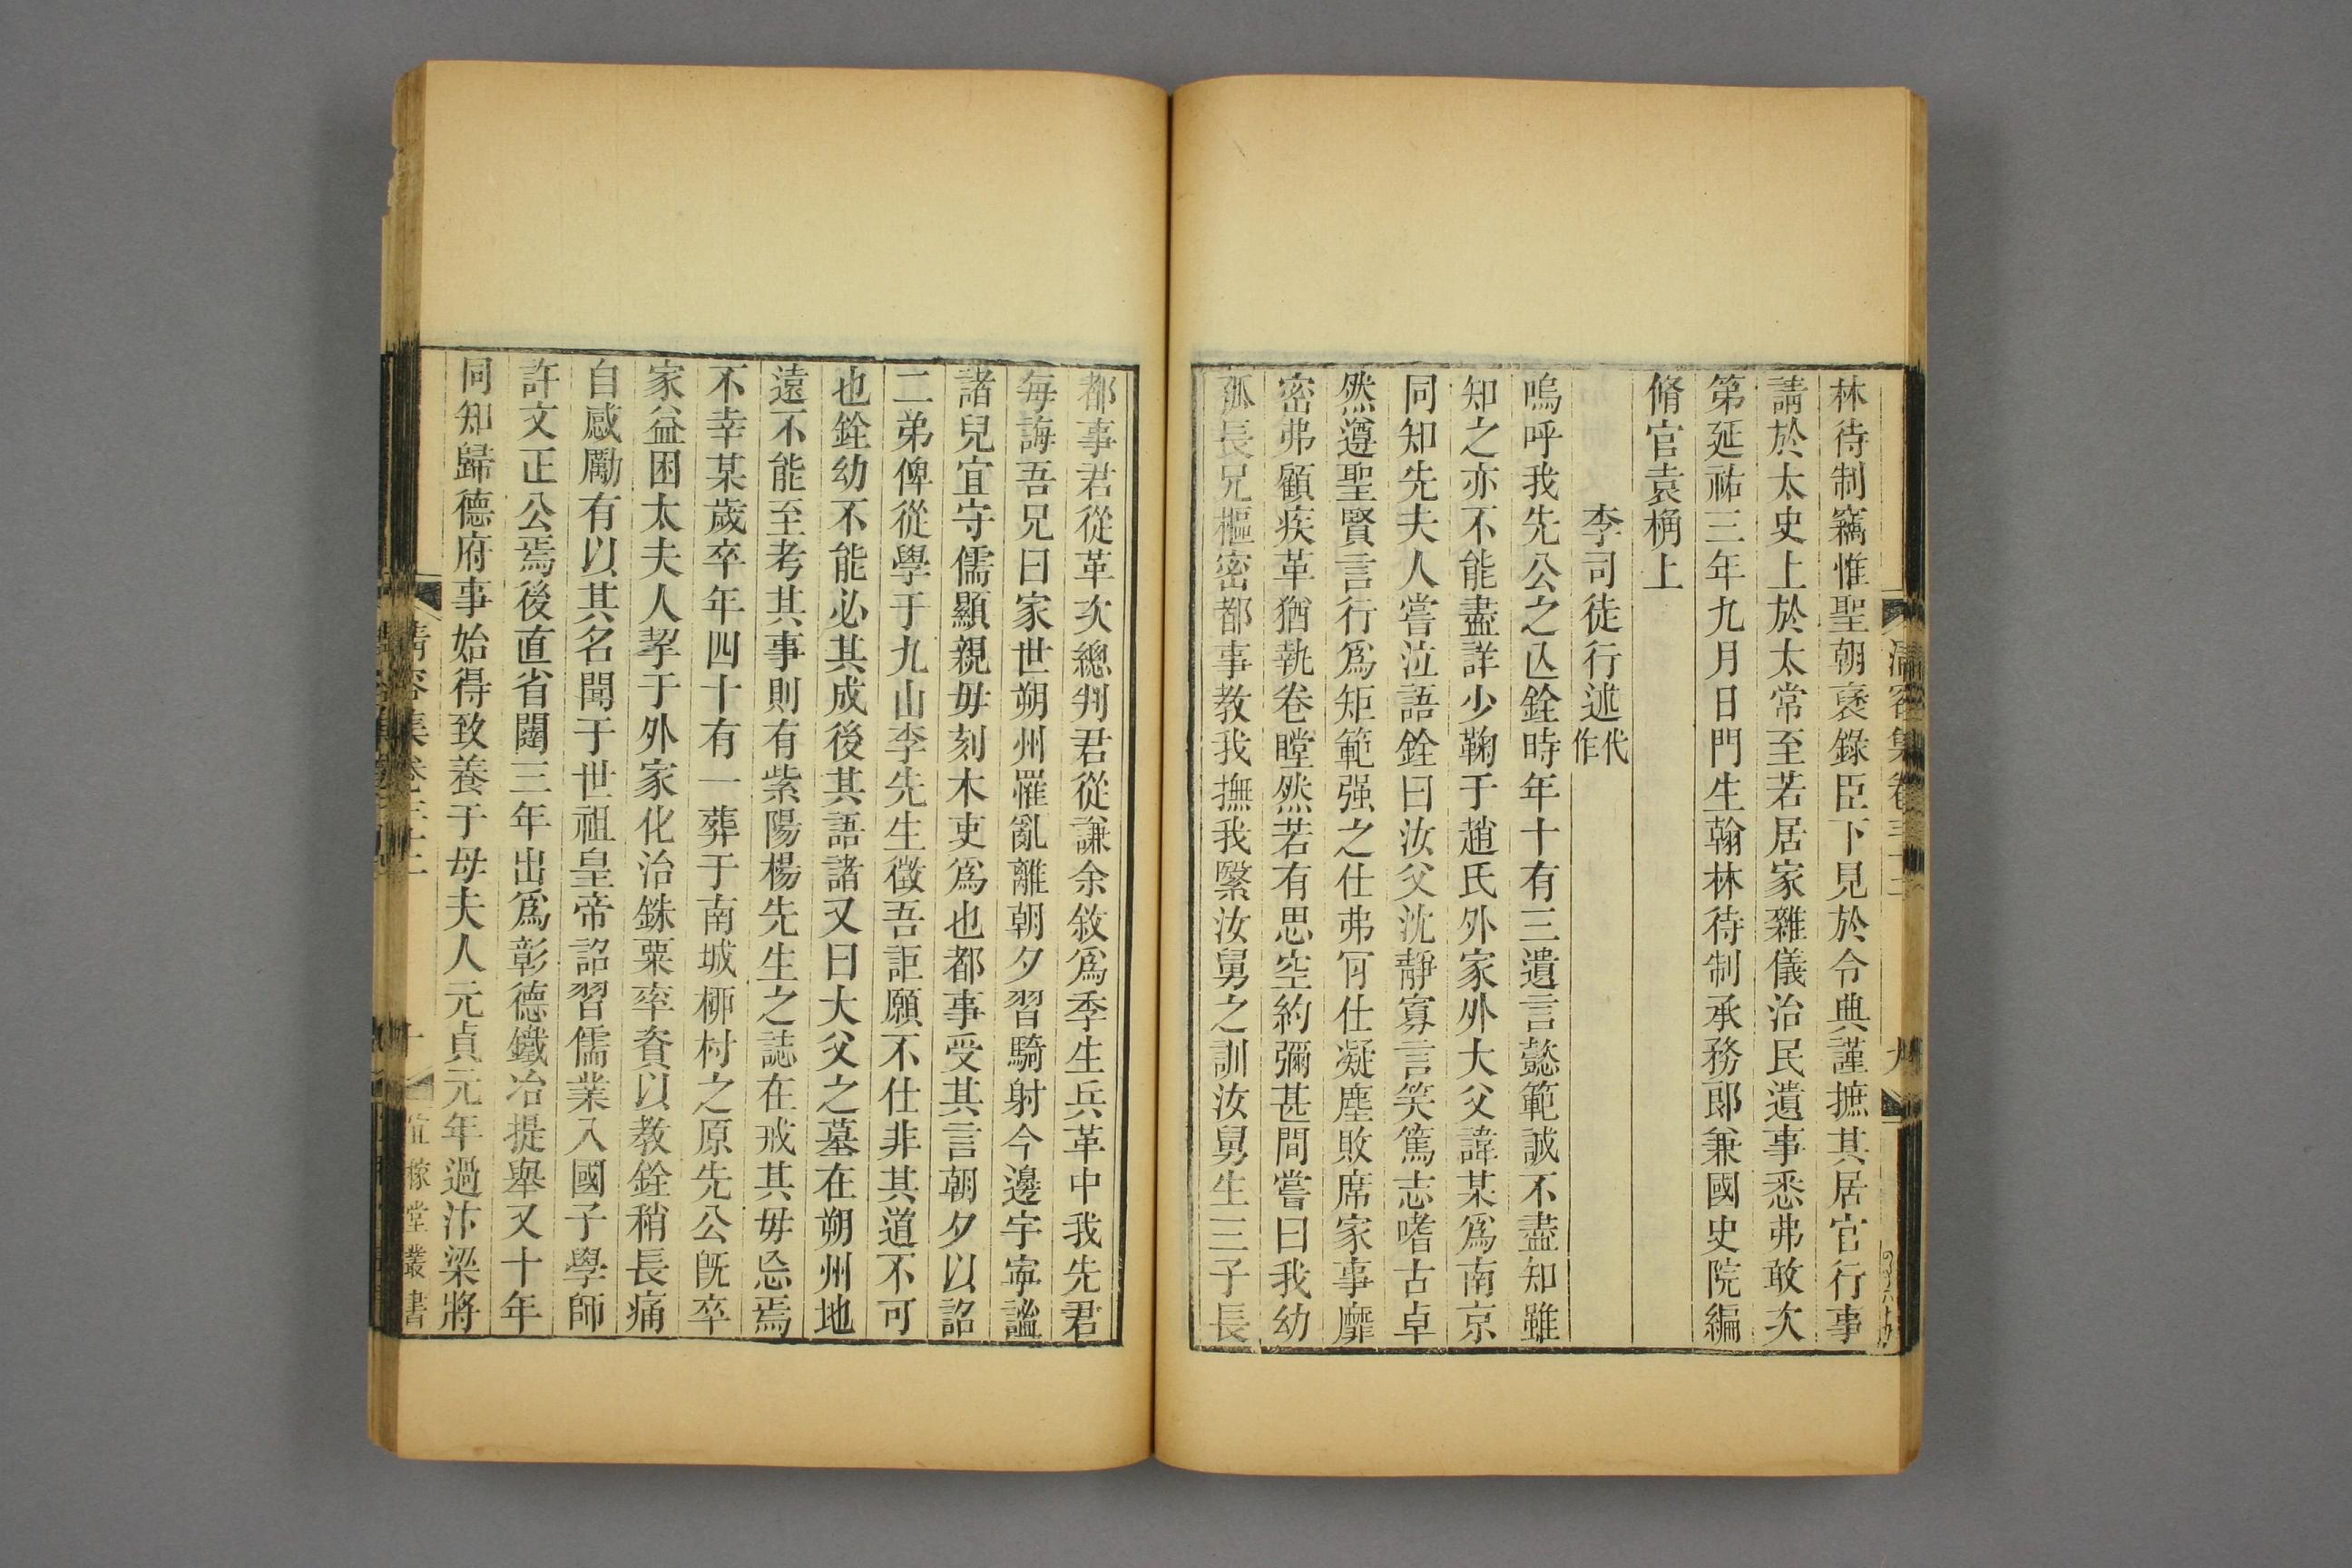 林待制竊惟聖朝襃錄臣下見於令典謹摭其居官行事
請於太史上於太常至若居家雜儀治民遺事悉弗敢次
第延祐三年九月日門生翰林待制承務郎兼國史院編
脩官袁桷上
李司徒行述代作
嗚呼我先公之亾銓時年十有三遺言懿範誠不盡知雖
知之亦不能盡詳少鞠于趙氏外家外大父諱某爲南京
同知先夫人嘗泣語銓曰汝父沈靜寡言笑篤志嗜古卓
然遵聖賢言行爲矩範强之仕弗肎仕凝塵敗席家事靡
密弗顧疾革猶執卷瞠然若有思空約彌甚間嘗曰我幼
孤長兄樞密都事教我撫我繄汝舅之訓汝舅生三子長
都事君從革次總判君從謙余敘爲季生兵革中我先君
每誨吾兄曰家世朔州罹亂離朝夕習騎射今邊宇寧謐
諸兒宜守儒顯親毋刻木吏爲也都事受其言朝夕以詔
二弟俾從學于九山李先生徵吾詎願不仕非其道不可
也銓幼不能必其成後其語諸又曰大父之墓在朔州地
遠不能至考其事則有紫陽楊先生之誌在戒其毋忘焉
不幸某歲卒年四十有一葬于南城柳村之原先公旣卒
家益困太夫人挈于外家化治銖粟率資以教銓稍長痛
自感勵有以其名聞于世祖皇帝詔習儒業入國子學師
許文正公焉後直省闥三年出爲彰德鐵冶提舉又十年
同知歸德府事始得致養于母夫人元貞元年過汴梁將
清容集卷三十二
九
十
宜稼堂叢書